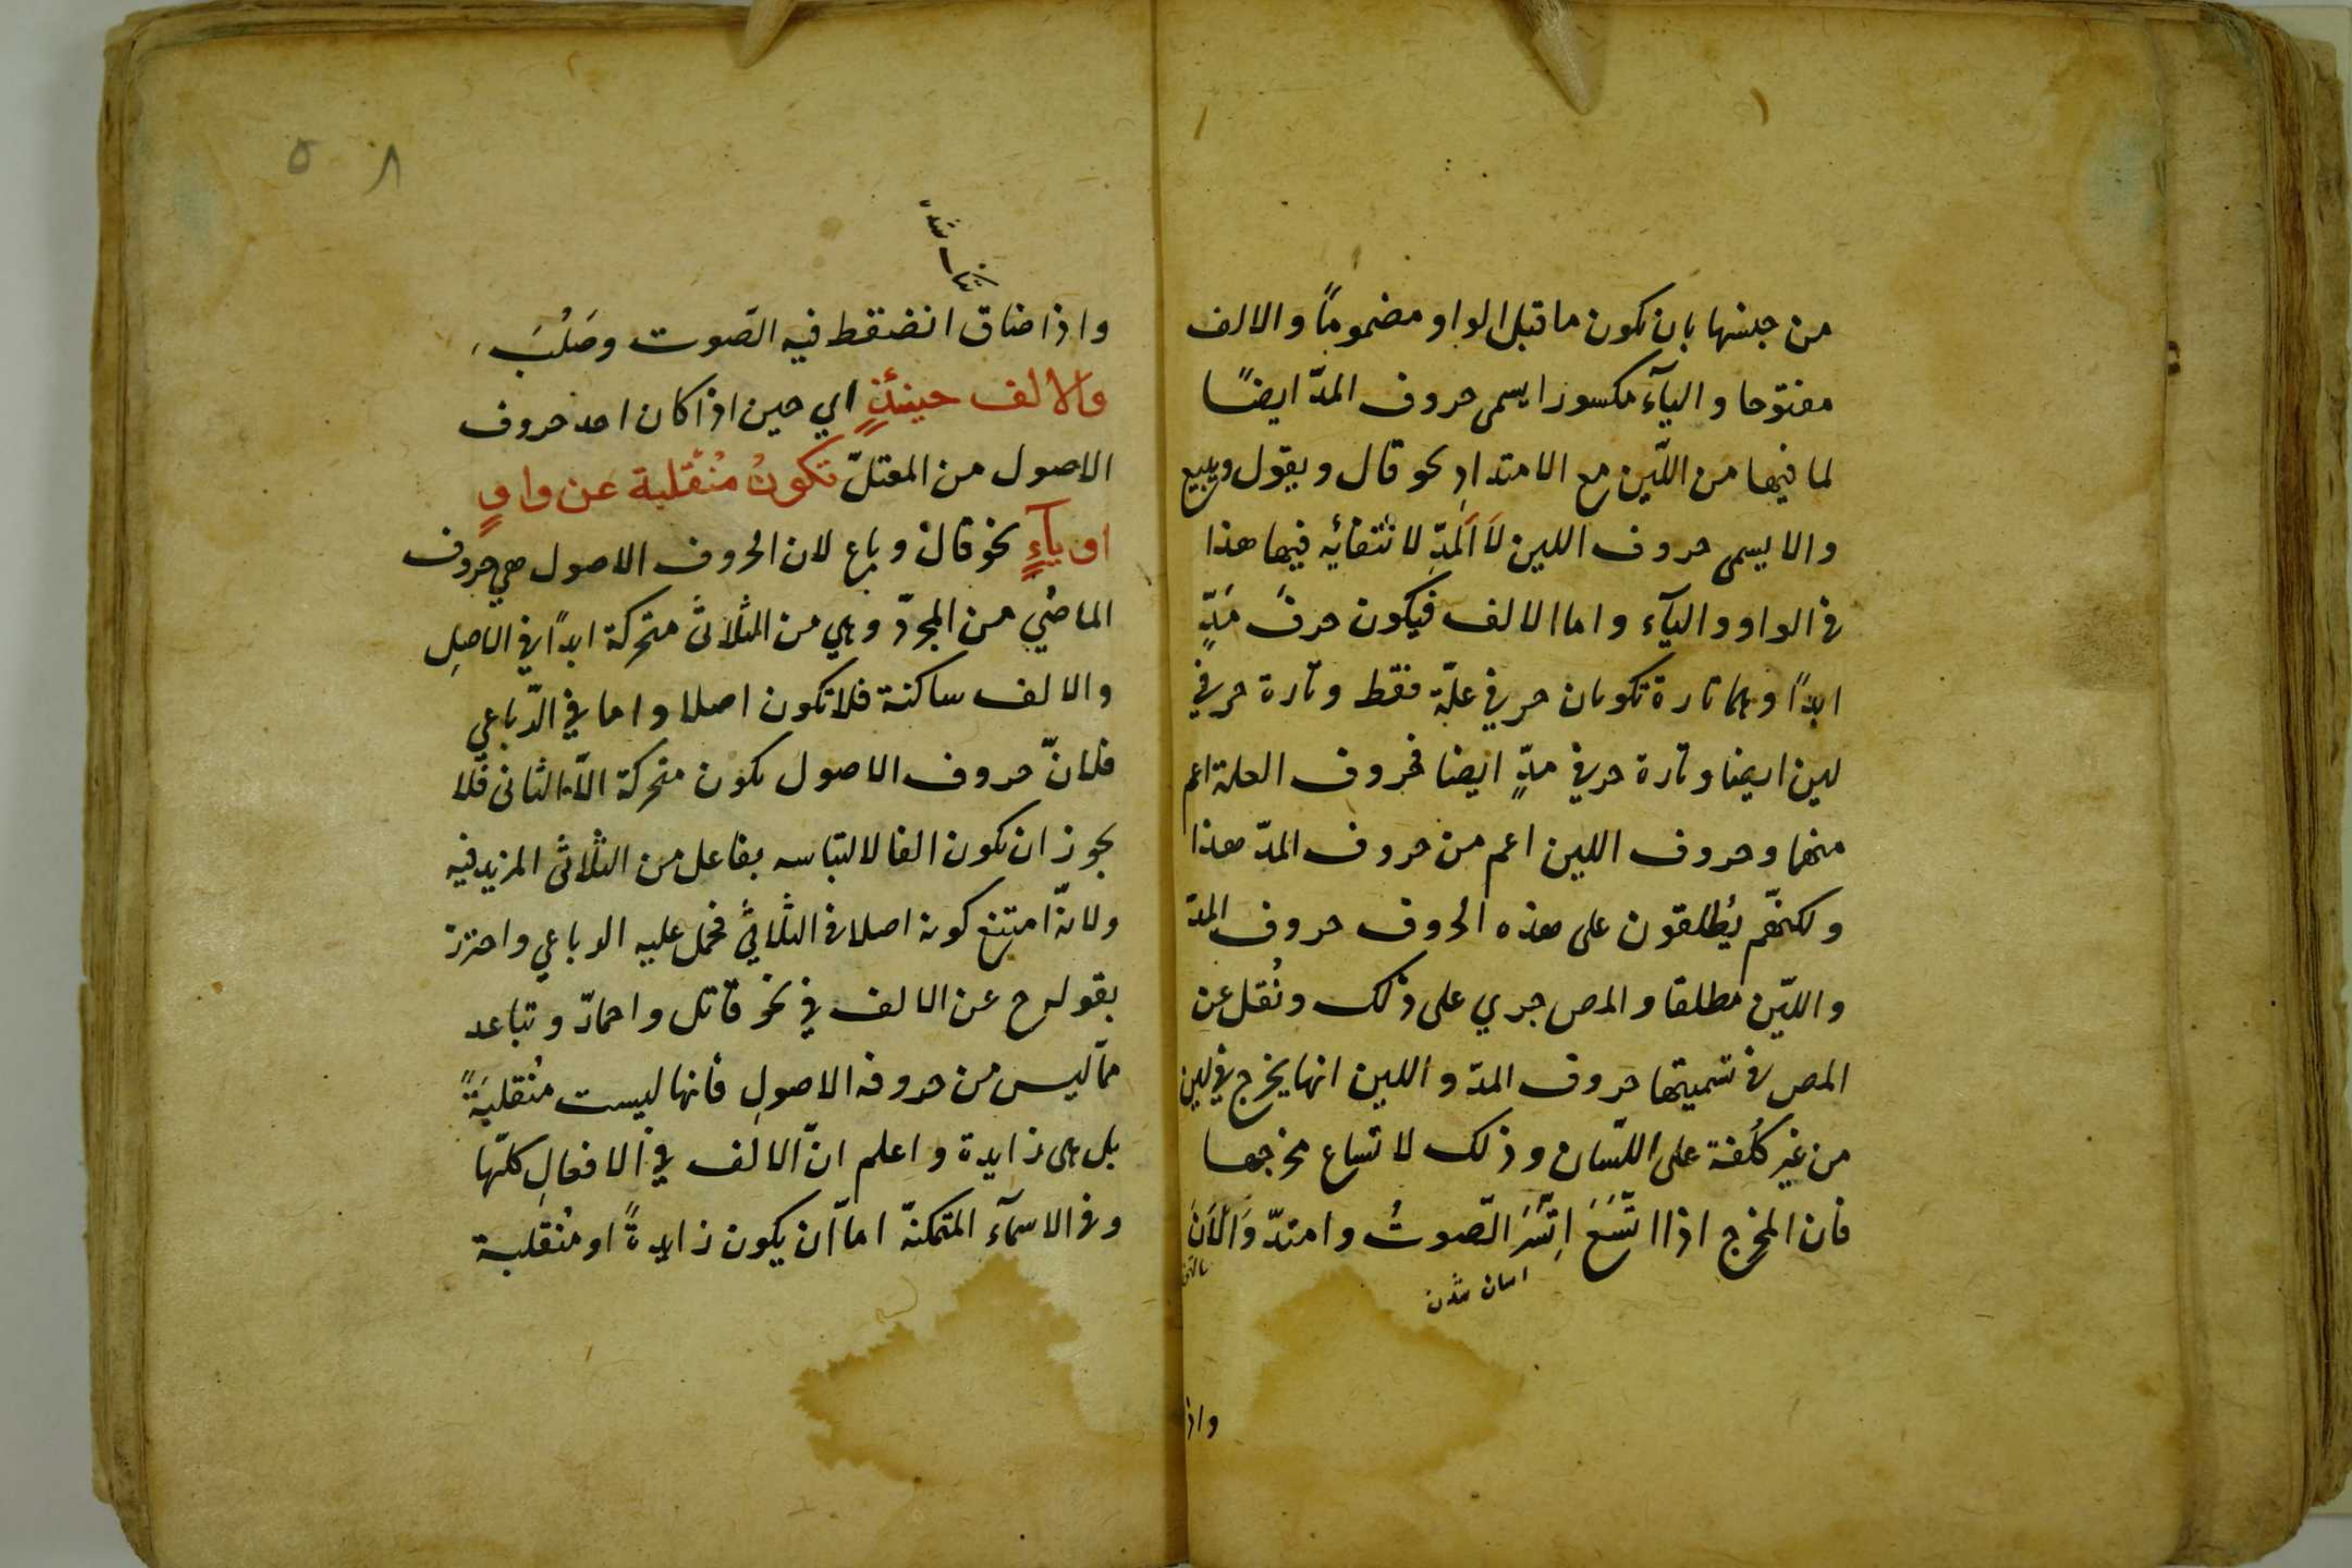 من جنسها بان يكون ما قبل الواو مضموماً والالف
مفتوحا واليآء مكسورا يسمى حروف المدّ ايضًا
لما فيها من اللّين مع الامتدادِ نحو قال ويقول ويبيع
والا يسمى حروف اللين لَا اَلْمَدِّ لانتفائه فيها هذا
فى الواو واليآء واما الالف فيكون حرفَ مَدٍّ
ابدًا وهما تارة تكونان حرفي علّة فقط وتارة حرفي
لين ايضا وتارة حرفي مدٍّ ايضا فحروف العلة اعم
منهما وحروف اللين اعم من حروف المدّ هذا
ولكنهّم يُطلقون على هذه الحروف حروف المدّ
واللّين مطلقا والمص جري على ذلك ونُقل عن
المص فى تسميتها حروف المدّ واللين انها يخرج في لين
من غير كُلْفة على اللّسان وذلك لاتساع مخرجها
فأن المخرج اذا اتّسَعَ اِنتَشَرَ الصّوتُ وامتدّ وَاَلْاَنَ
اسان شدن
واذ
٥ ٨
واذا ضاق انضغط فيه الصّوت وصَلُبَ
والالف حينئذٍ اي حين اذا كان احد حروف
الاصول من المعتلّ تكونُ مُنْقَلبة عن واوٍ
او يآءٍ نحو قال وباع لان الحروف الاصول هي حروف
الماضي من المجرّد وهي من الثلاثى متحركة ابدًا في الاصلِ
والالف ساكنة فلا تكون اصلا واما في الرّباعي
فلانّ حروف الاصول يكون متحركة الاّ الثانى فلا
يجوز ان يكون الفا لالتباسه بفاعل من الثلاثى المزيد فيه
ولانّه امتنع كونه اصلا فى الثّلاثيّ فحمل عليه الرباعي واحترز
بقوله ح عن الالف في نحو قاتل واحمارّ وتباعد
ممّا ليس من حروفه الاصولِ فأنها ليست مُنْقلبَةً
بل هى زايدة واعلم انّ الالف في الافعالِ كلّها
وفى الاسمآء المتمكنّة امّا ان يكون زايدةً او مُنْقلبة